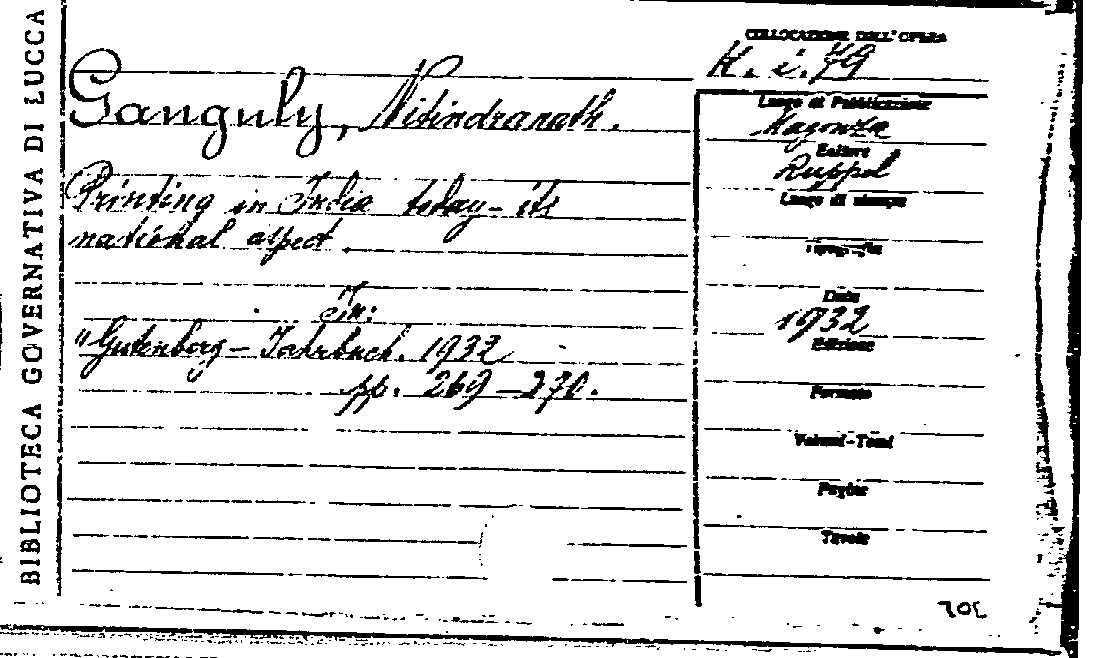 BIBLIOTECA GOVERNATIVA DI LUCCA
COLLOCAZIONE DELL'OPERA
H. i. 79
Ganguly, Nitindranath.
Printing in India today - its
national aspect.
In:
"Gutenberg - Jahrbuch. 1932
pp. 269 - 270.
Luogo di Pubblicazione
Magonza
Editore
Ruppel
Luogo di stampa
Tipografia
Data
1932
Edizione
Formato
Volumi-Tomi
Pagine
Tavole